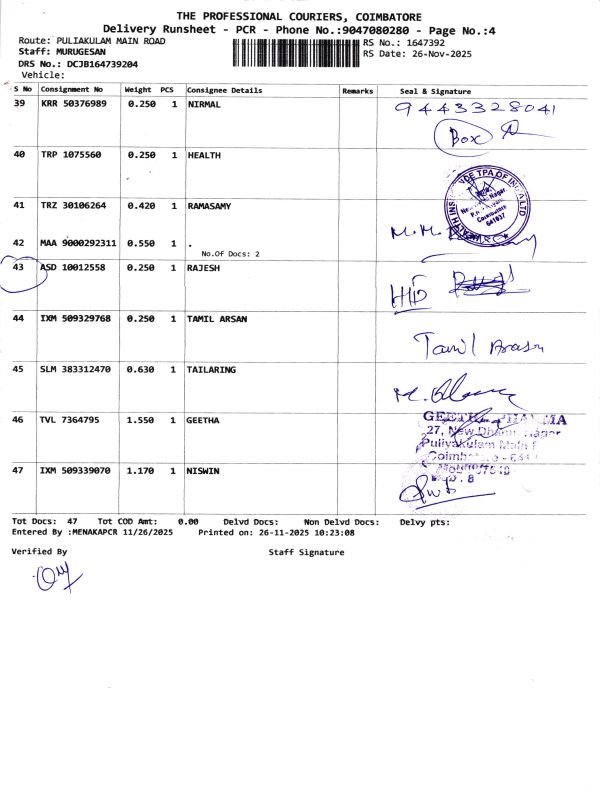 THE PROFESSIONAL COURIERS, COIMBATORE
Delivery Runsheet - PCR - Phone No.:9047080280 - Page No.:4
Route: PULIAKULAM MAIN ROAD RS No.: 1647392
Staff: MURUGESAN RS Date: 26-Nov-2025
DRS No.: DCJB164739204
Vehicle:
S No Consignment No Weight PCS Consignee Details Remarks Seal & Signature
39 KRR 50376989 0.250 1 NIRMAL 9443328041
Box
40 TRP 1075560 0.250 1 HEALTH
TPA OF LTD
Nagar
Coimbatore
641037
41 TRZ 30106264 0.420 1 RAMASAMY
42 MAA 9000292311 0.550 1 .
No.Of Docs: 2
43 ASD 10012558 0.250 1 RAJESH
44 IXM 509329768 0.250 1 TAMIL ARSAN
Tamil Arasn
45 SLM 383312470 0.630 1 TAILARING
46 TVL 7364795 1.550 1 GEETHA
27, New Nagar
Puliyakulam Main
47 IXM 509339070 1.170 1 NISWIN
Tot Docs: 47 Tot COD Amt: 0.00 Delvd Docs: Non Delvd Docs: Delvy pts:
Entered By :MENAKAPCR 11/26/2025 Printed on: 26-11-2025 10:23:08
Verified By Staff Signature